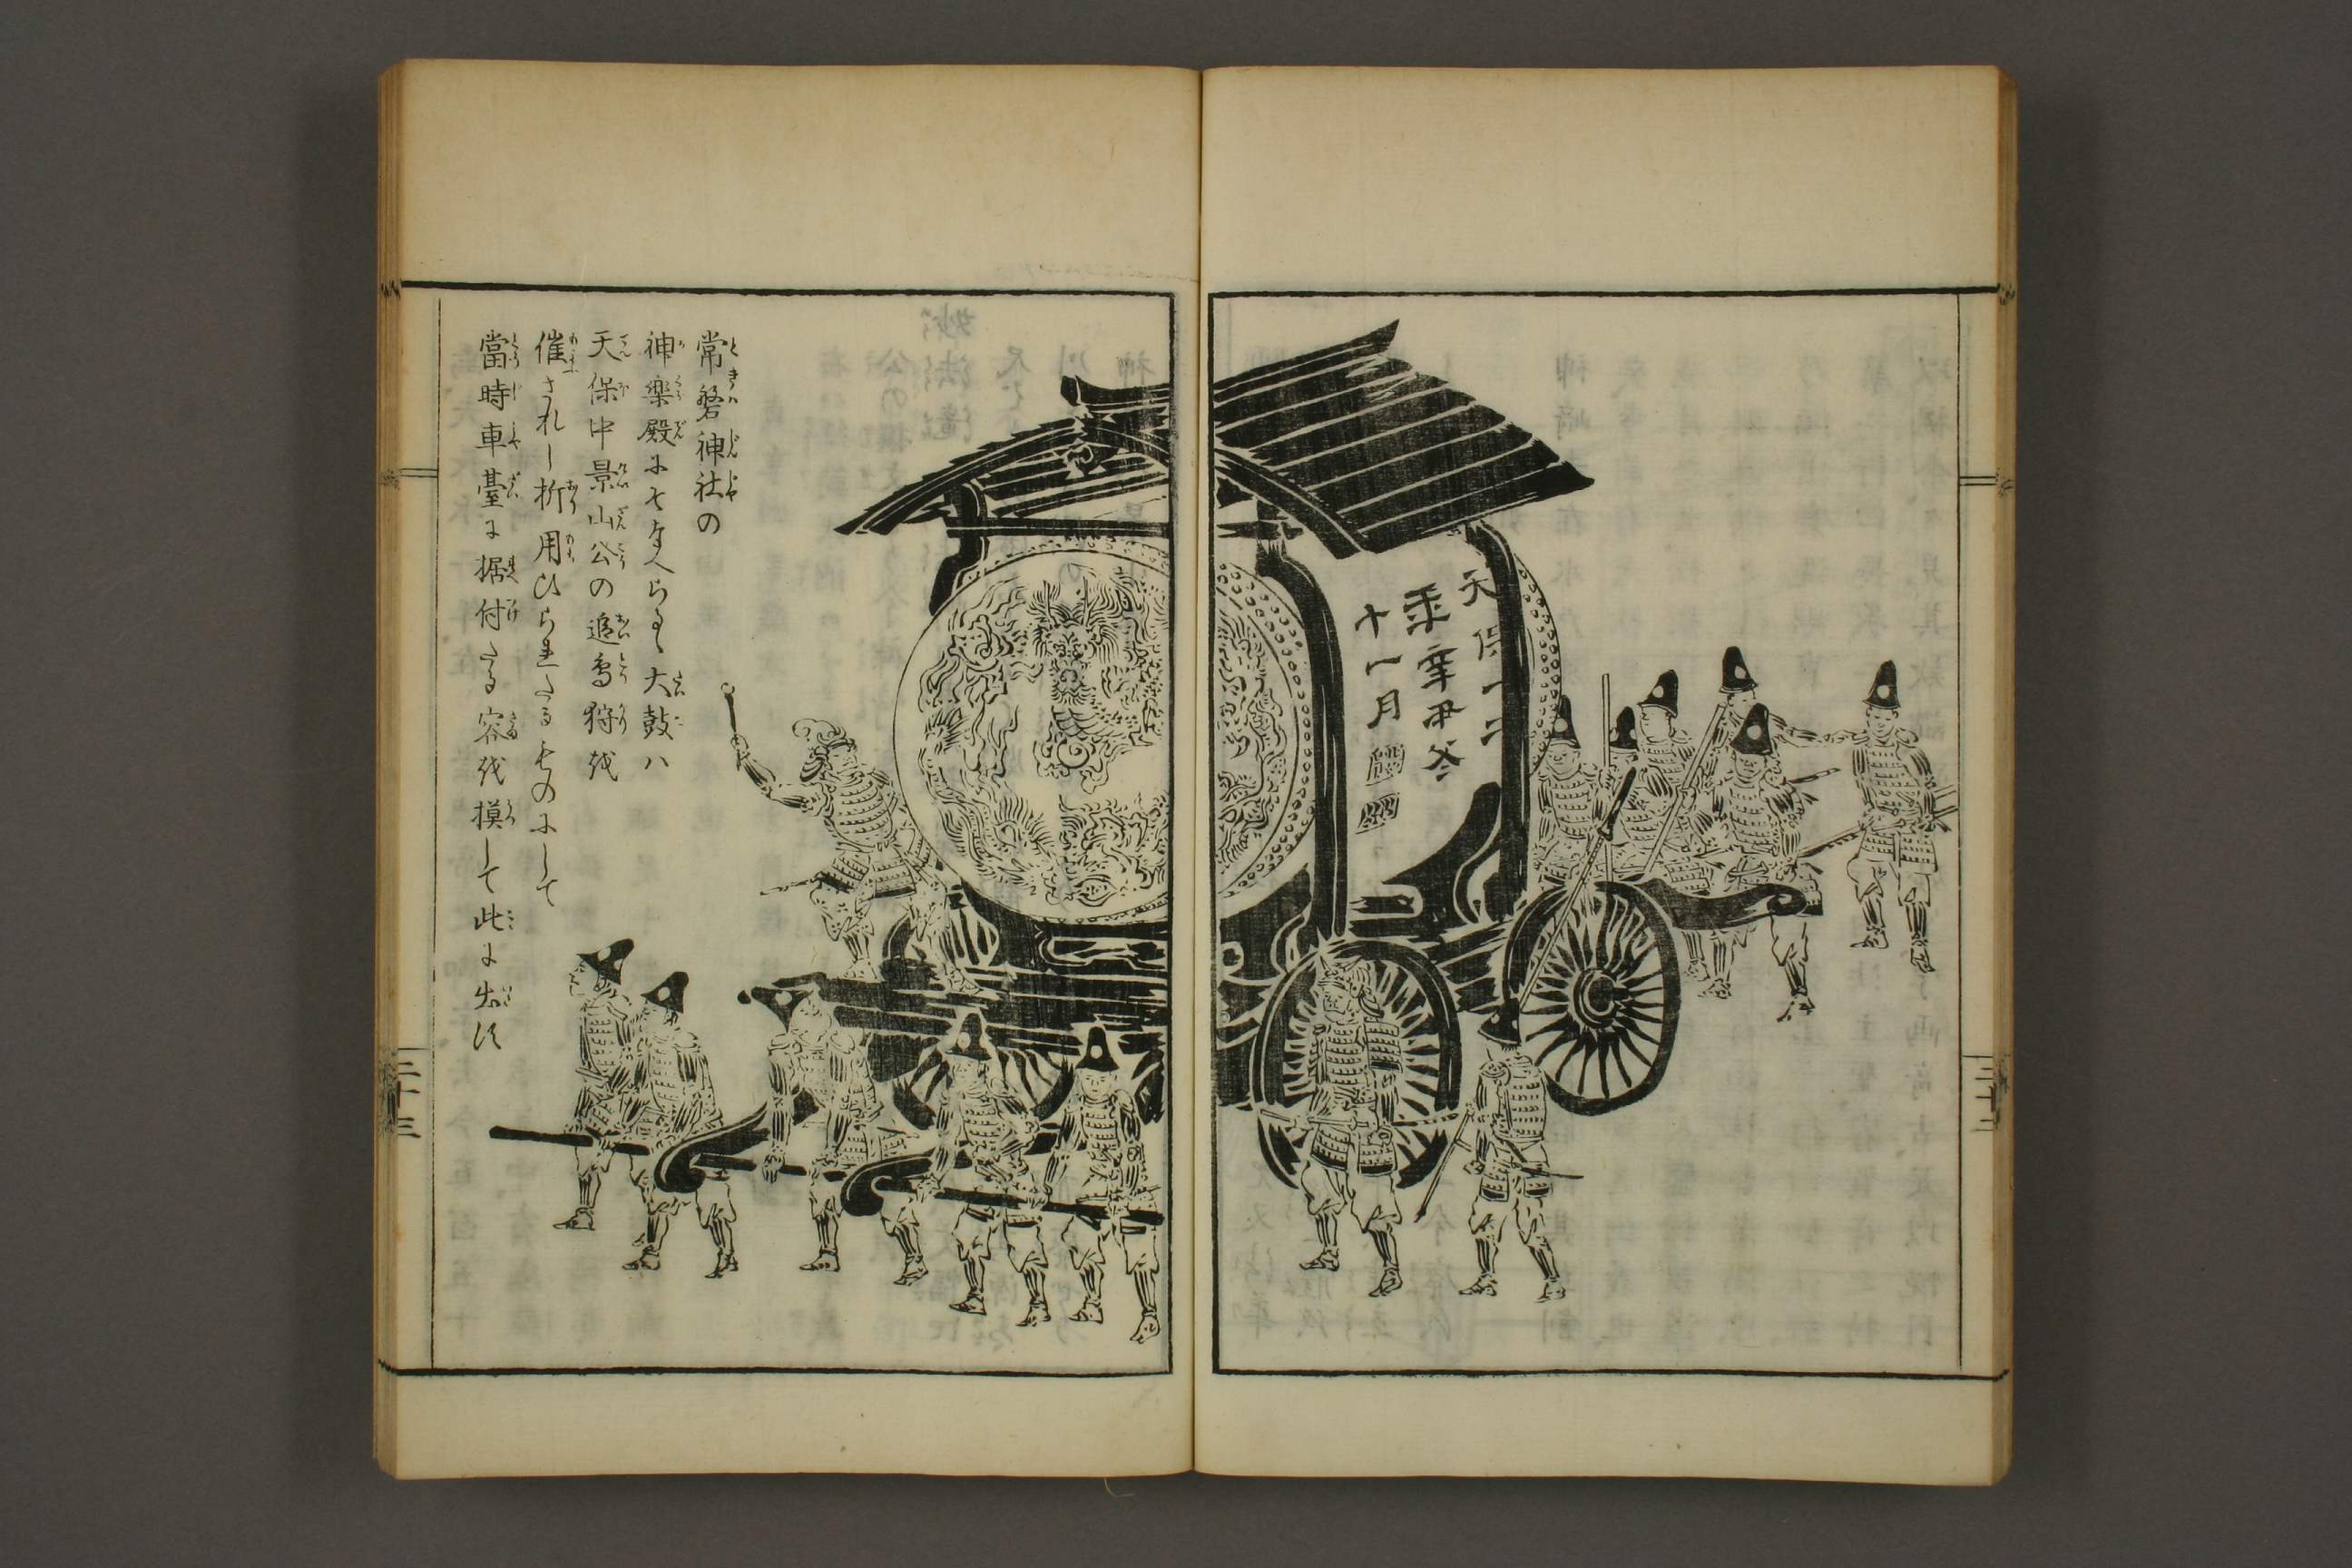 天保十二
秊辛丑冬
十一月
三十二
常磐神社の
神樂殿にそなへらるゝ大鼓ハ
天保中景山公の追鳥狩を
催されし折用ひられたるものにして
當時車臺に据付たる容を摸して此に出す
三十三